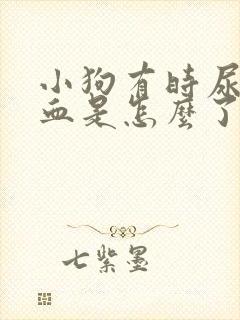 小狗有時尿
血是怎麼了
七紫墨